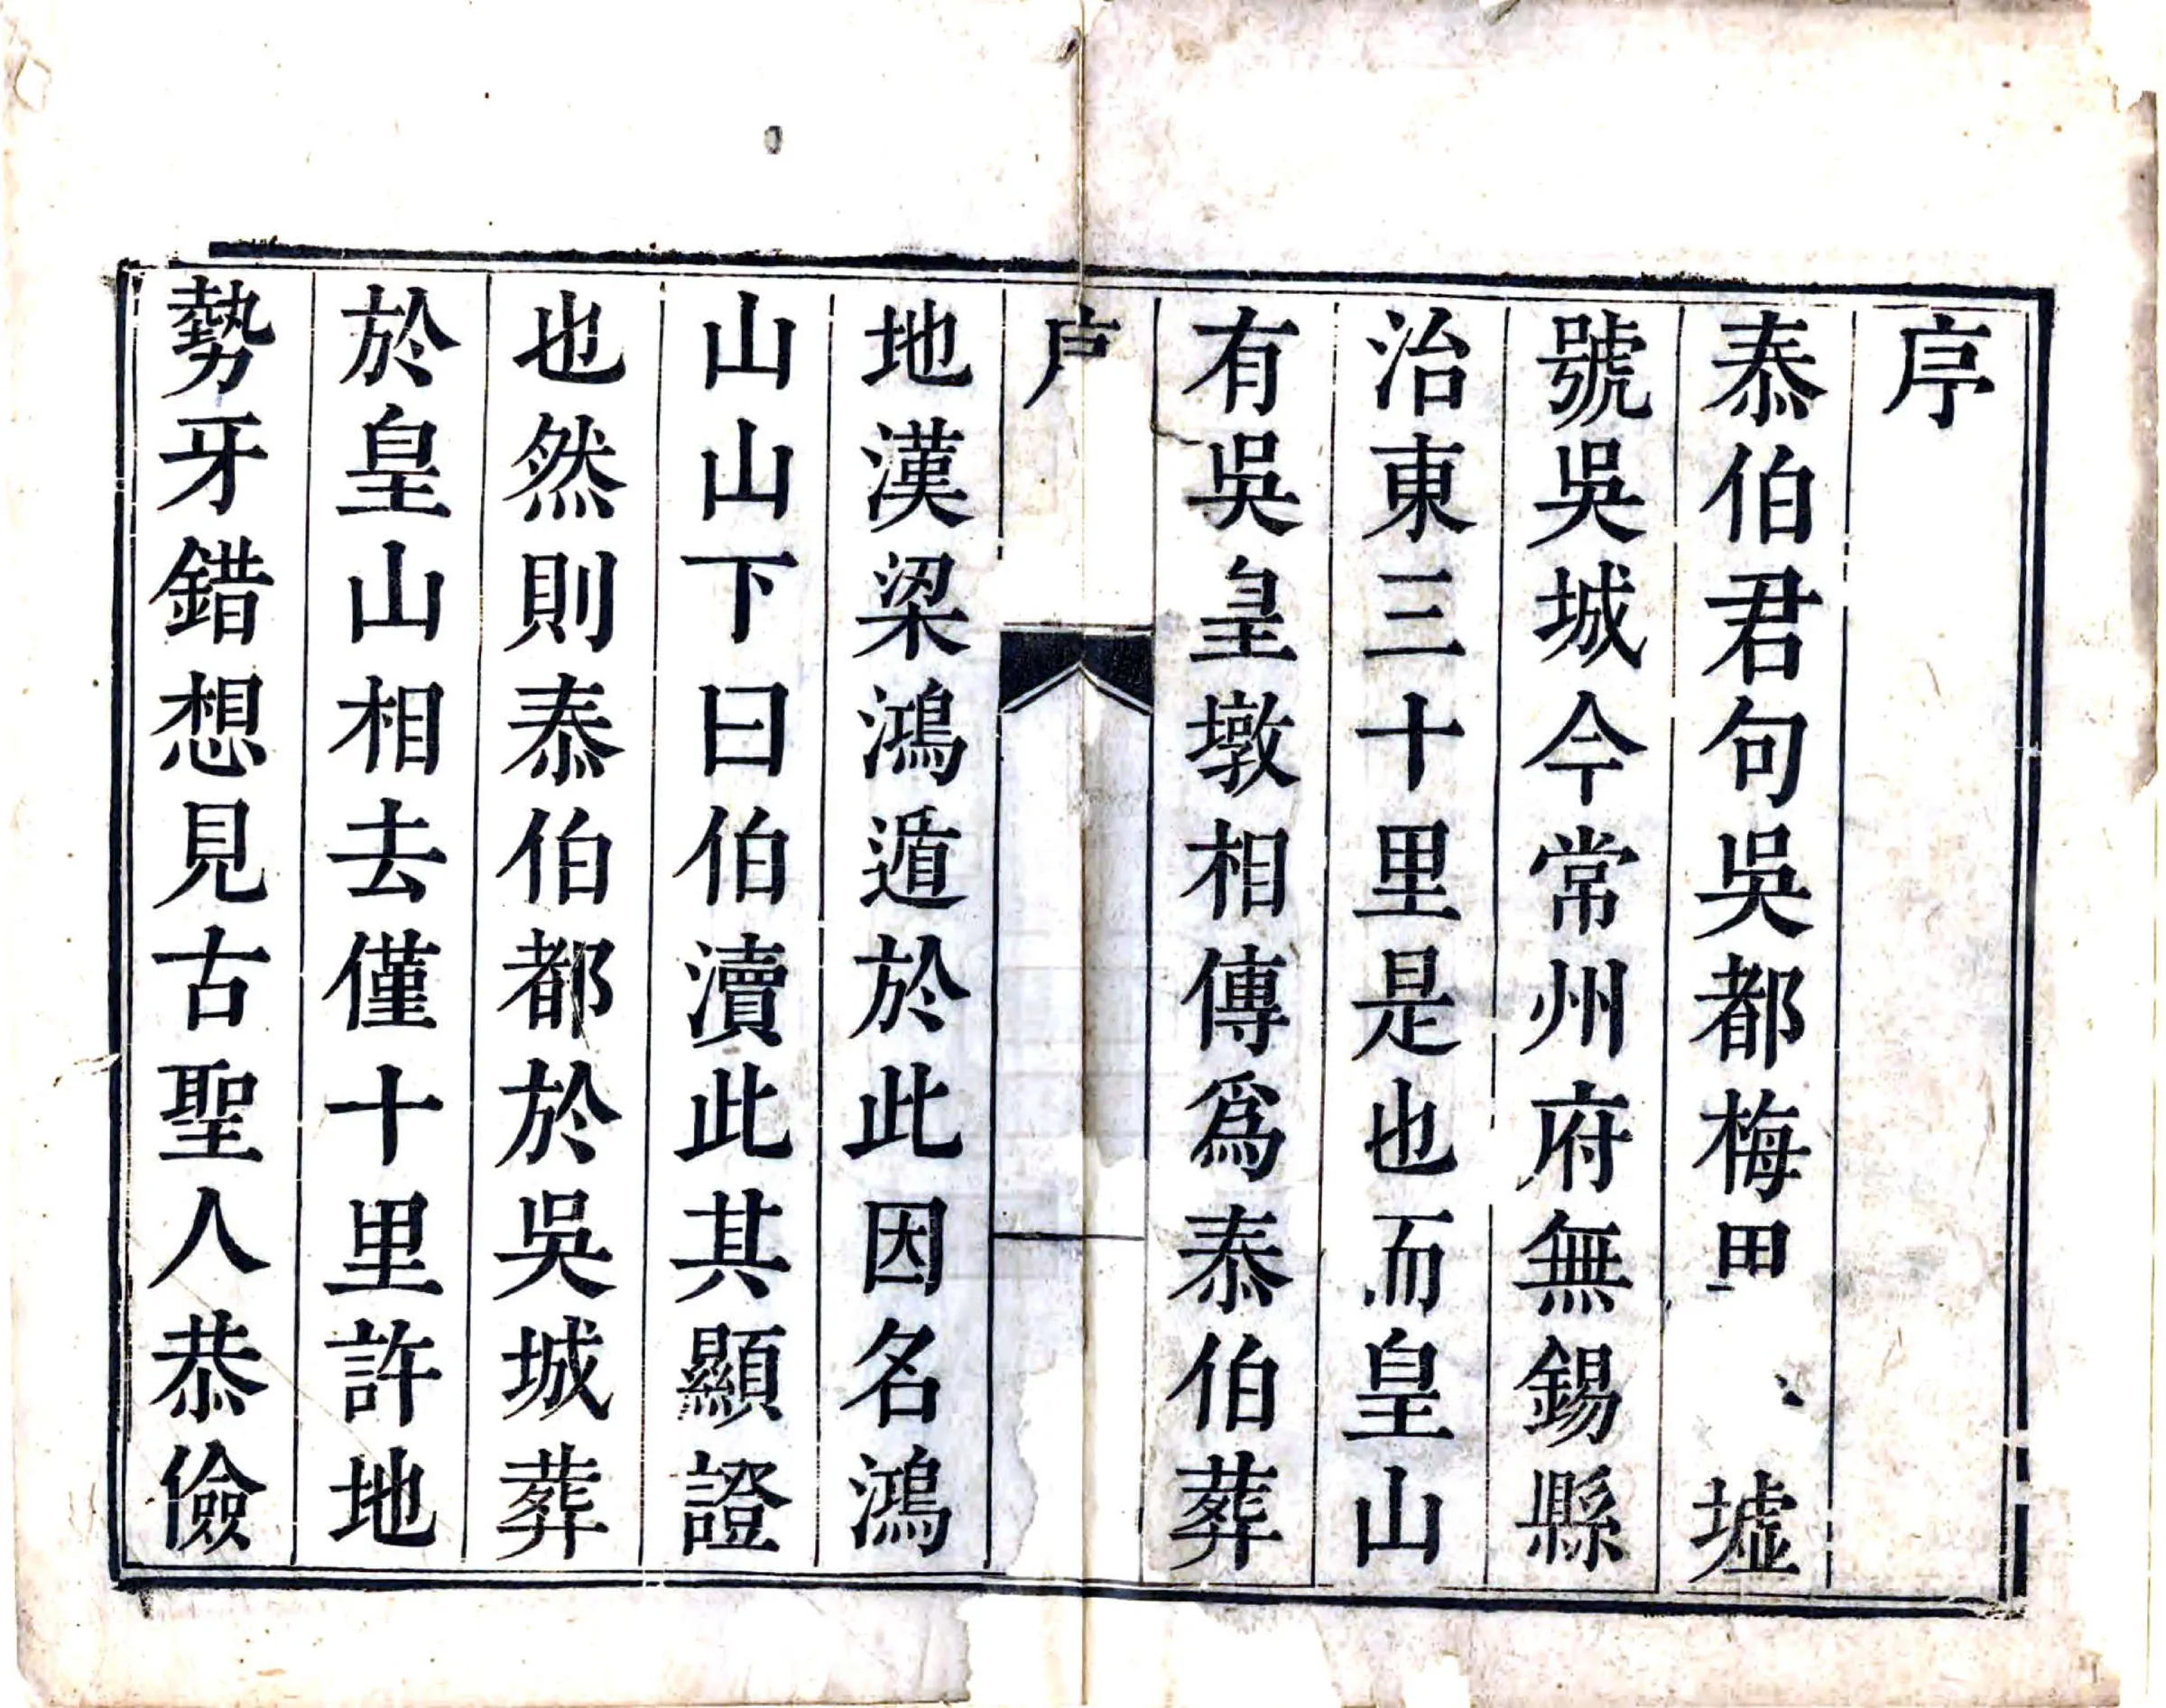 序
泰伯君句吳都梅里墟
號吳城今常州府無錫縣
治東三十里是也而皇山
有吳皇墩相傳爲泰伯葬
序
地漢梁鴻遁於此因名鴻
山山下曰伯瀆此其顯證
也然則泰伯都於吳城葬
於皇山相去僅十里許地
勢牙錯想見古聖人恭儉